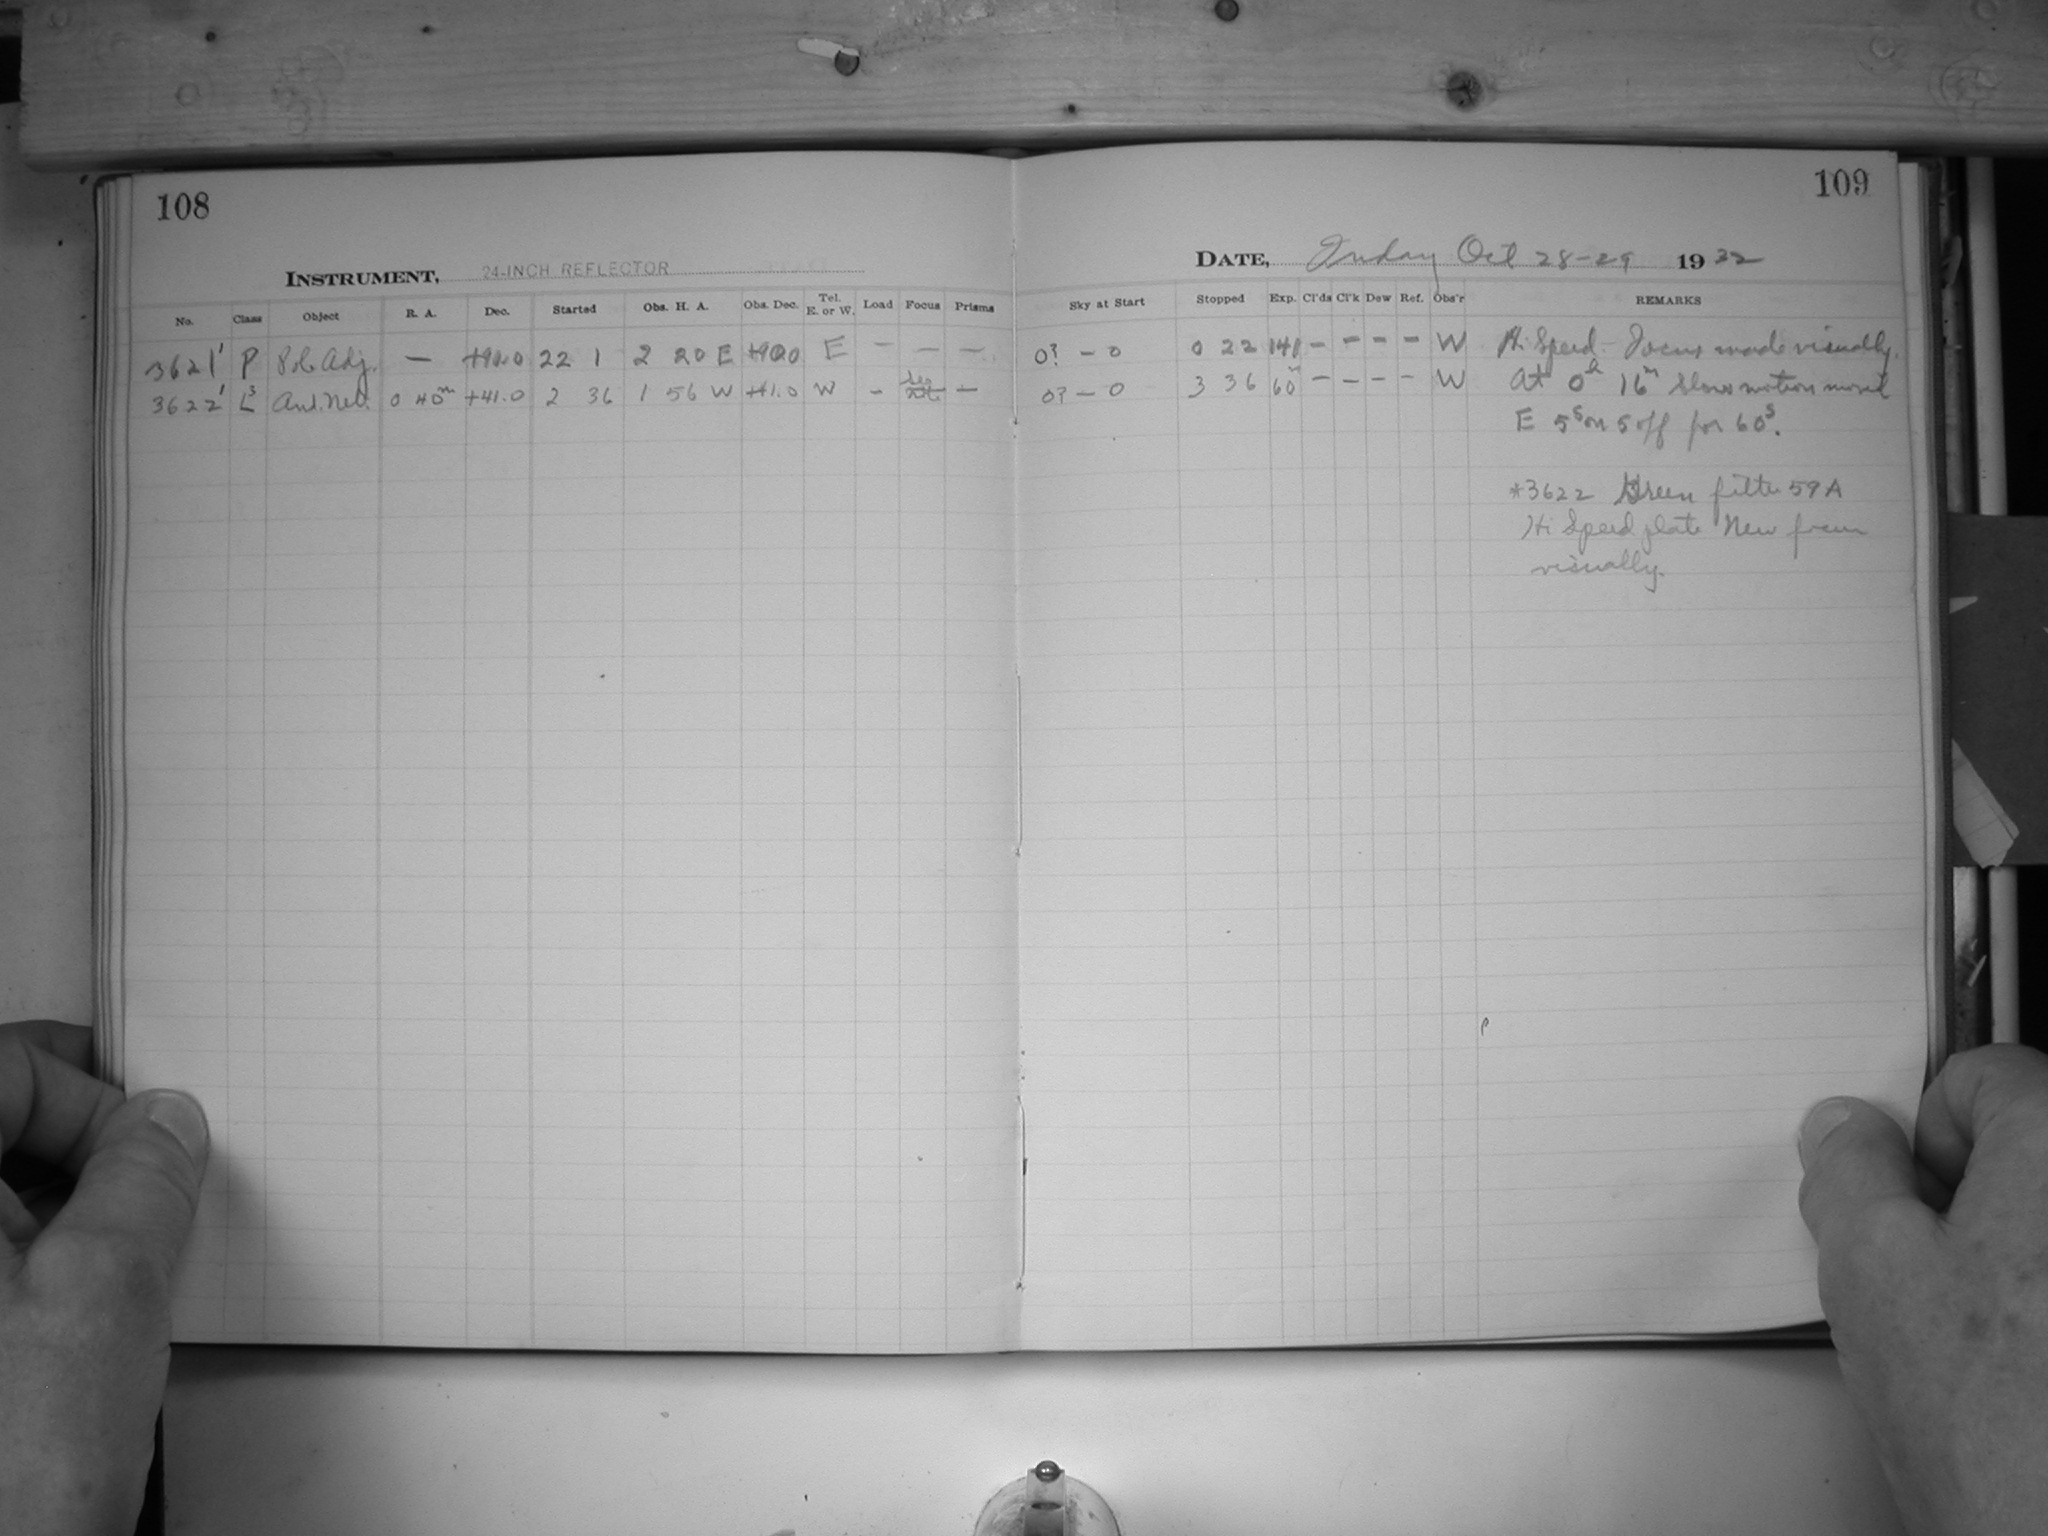 108
109
INSTRUMENT, 24-INCH REFLECTOR
DATE, Friday Oct 28-29 1932
No. Class Object R. A. Dec. Started Obs. H. A. Obs. Dec. Tel. E. or W. Load Focus Prisms Sky at Start Stopped Exp. Cl'ds Cl'k Dew Ref. Obs'r REMARKS
3621' P Pole Adj. — +90.0 22 1 2 20 E +90.0 E — — — 0? — 0 0 22 141 — — — — W Hi Speed - Focus made visually.
3622' L3 And. Neb. 0 40m +41.0 2 36 1 56 W +41.0 W — — 0? — 0 3 36 60m — — — — W At 0h 16m Slow motion moved
E 5s on 5 off for 60s.
*3622 Green filter 59A
Hi Speed plate New focus
visually.